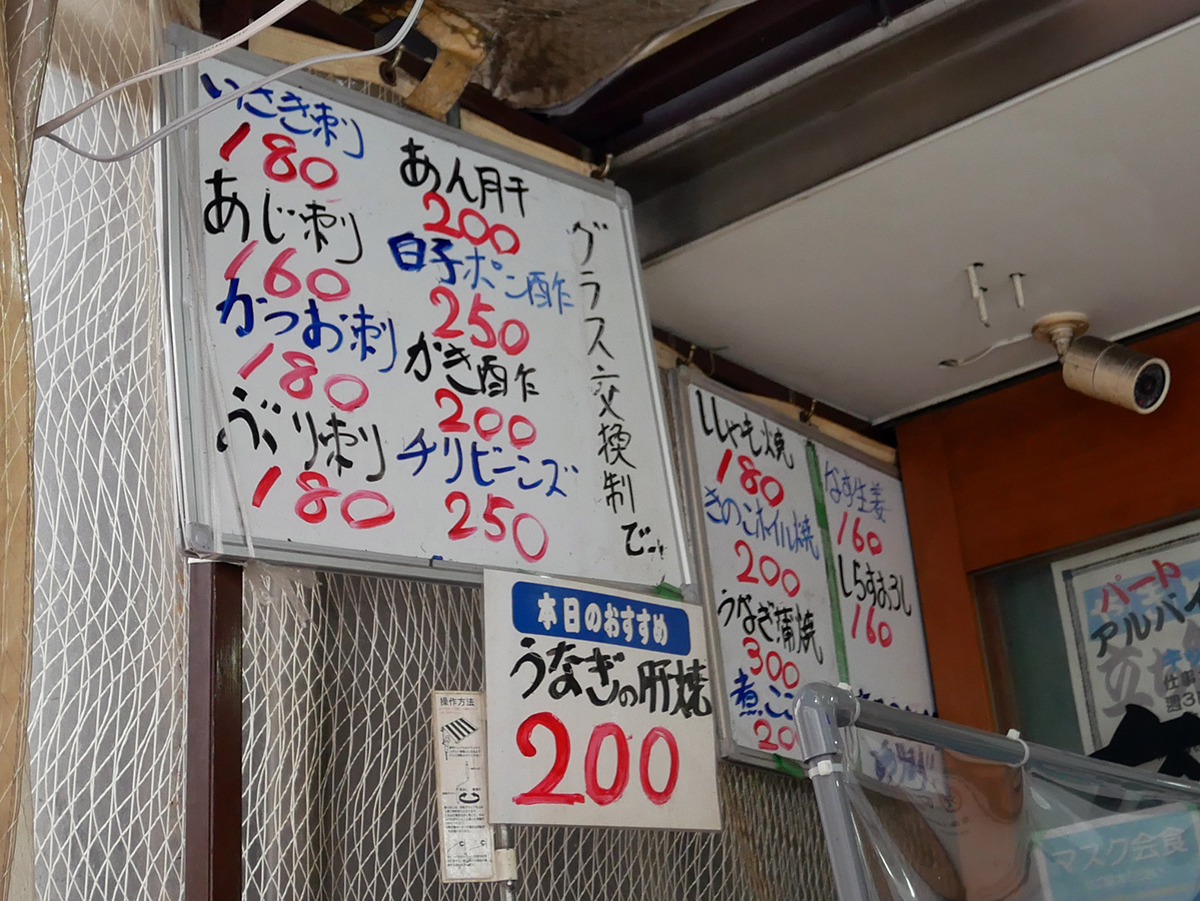 いさき刺
180
あじ刺
160
かつお刺
180
ぶり刺
180
あん肝
200
白子ポン酢
250
かき酢
200
チリビーンズ
250
グラス交換制で
本日のおすすめ
うなぎの肝焼
200
ししゃも焼
180
きのこホイル焼
200
うなぎ蒲焼
300
煮こ
20
なす生姜
160
しらすおろし
160
操作方法
パート
アルバイ
仕事
週3
マスク会食